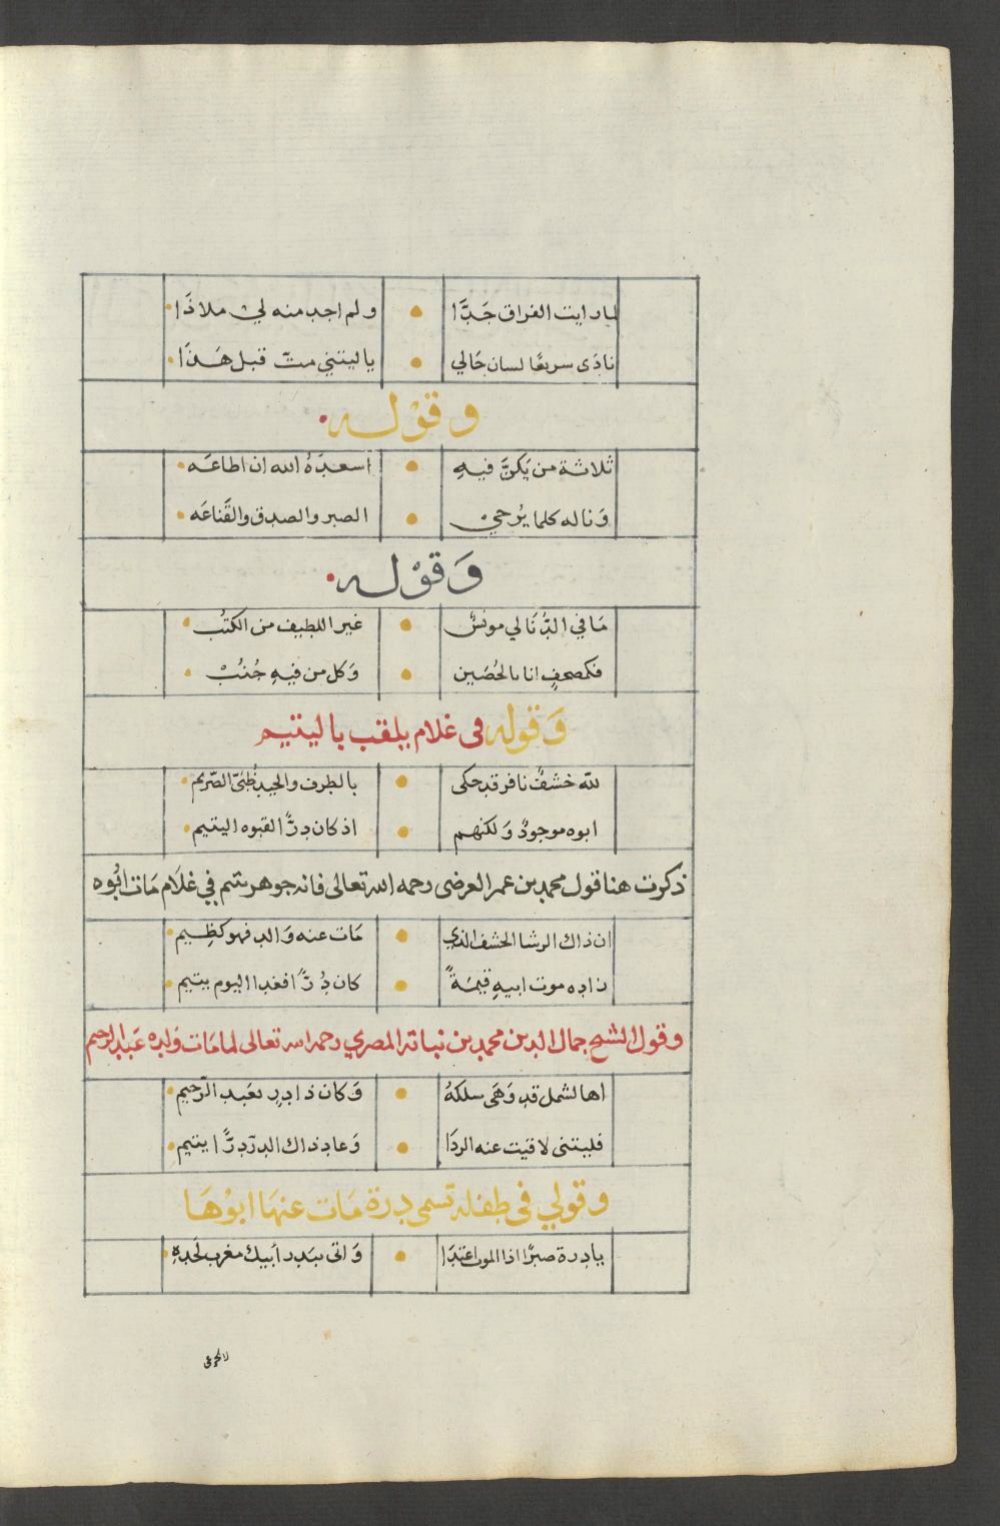 لما رايت الفراق جَدَّا • ولم اجد منه لي ملاذَا •
نادَى سريعًا لسان حَالي • ياليتني متّ قبل هَذَا •
وقوْله •
ثلاثة من يَكنَّ فيهِ • اسعَدَهُ الله ان اطاعَه •
وَناله كلما يُرجي • الصبر والصدق والقَناعَه •
وَقوْله •
مَا في الدُّنَا لي مونسٌ • غير اللطيف من الكتُب •
فكمصحفٍ انا بالحُصَين • وَكل من فيهِ جُنُبْ •
وَقوله فى غلام يلقب باليتيم
للّه خشفٌ نافر قد حكى • بالطرف والجيد ظبيَ الصّريم •
ابوه موجودٌ وَلكنهم • اذ كان درًّا لقبوه اليتيم •
ذكرت هنا قول محمد بن عمر العرضى رحمه الله تعالى فانه جوهر يتيم في غلَام مَات ابُوه
ان ذاك الرشا الخشف الذي • مَات عنه وَالد فهو كظِيم •
زاده موت ابيهِ قيمَةً • كان دُرًّا فغدا اليوم يتيم •
وقول الشيخ جمال الدين محمد بن نباته المصري رحمه الله تعالى لما مَات وَلده عَبد الرحيم
اها لشمل قد وَهَى سلكهُ • وَكان ذا دِر بعَبد الرّحيم •
فليتنى لاقيت عنه الردَا • وَعاد ذاك الدرّ درًّا يتيم •
وقولي فى طفله تسمى درة مَات عنهَا ابوْهَا
يا درة صبرًا اذا الموت اعتدَا • وَاتى ببَدر ابيك مغرب لَحده •